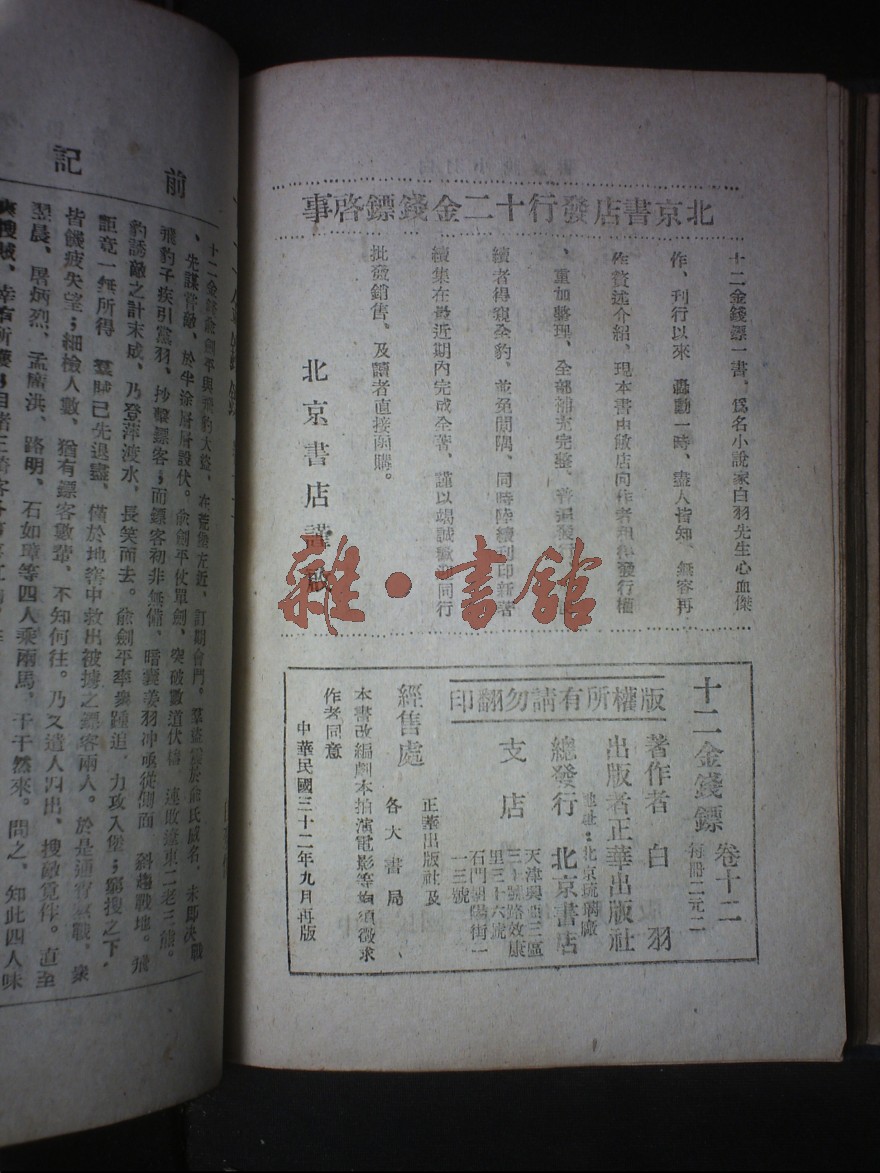 北京書店發行十二金錢鏢啓事
十二金錢鏢一書、爲名小說家白羽先生心血傑
作、刊行以來 轟動一時、盡人皆知、無容再
作贅述介紹、現本書由敝店向作者 發行權
、重加整理、全部補充完整、普遍發行
續者得窺全豹、並免間隅、同時陸續刊印新著
續集在最近期內完成全著、謹以竭誠歡迎同行
批發銷售、及讀者直接函購。
北京書店謹啟
雜·書館
十二金錢鏢 卷十二
每冊二元二
著作者 白羽
出版者正華出版社
地址：北京琉璃廠
總發行 北京書店
支店
天津興亞三區
三十號路效康
里三十六號
石門朝陽街一
一三號
版權所有請勿翻印
經售處
正華出版社及
各大書局
本書改編劇本拍演電影等均須徵求
作者同意
中華民國三十二年九月再版
前記
十二金錢鏢俞劍平與飛豹大盜、在 左近、訂期會鬥。羣盜 於俞氏威名、未即決戰
、先謀 敵、於半途層層設伏。俞劍平仗單劍、突破數道伏樁 連敗遼東二老三熊。
飛豹子疾引黨羽、抄擊鏢客；而鏢客初非無備、暗囊姜羽冲亟從側面 斜趨戰地。飛
豹誘敵之計未成、乃登萍渡水、長笑而去。俞劍平率衆踵追、力攻入堡；窮搜之下、
詎竟一無所得 羣賊已先退盡、僅於地窖中救出被擄之鏢客兩人。於是通宵 戰、衆
皆饑疲失望；細檢人數、猶有鏢客數輩、不知何往。乃又遣人四出、搜敵覓伴。直至
翌晨、屠炳烈、孟廣洪、路明、石如璋等四人乘兩馬。于于然來。問之、知此四人味
搜賊、幸有所獲